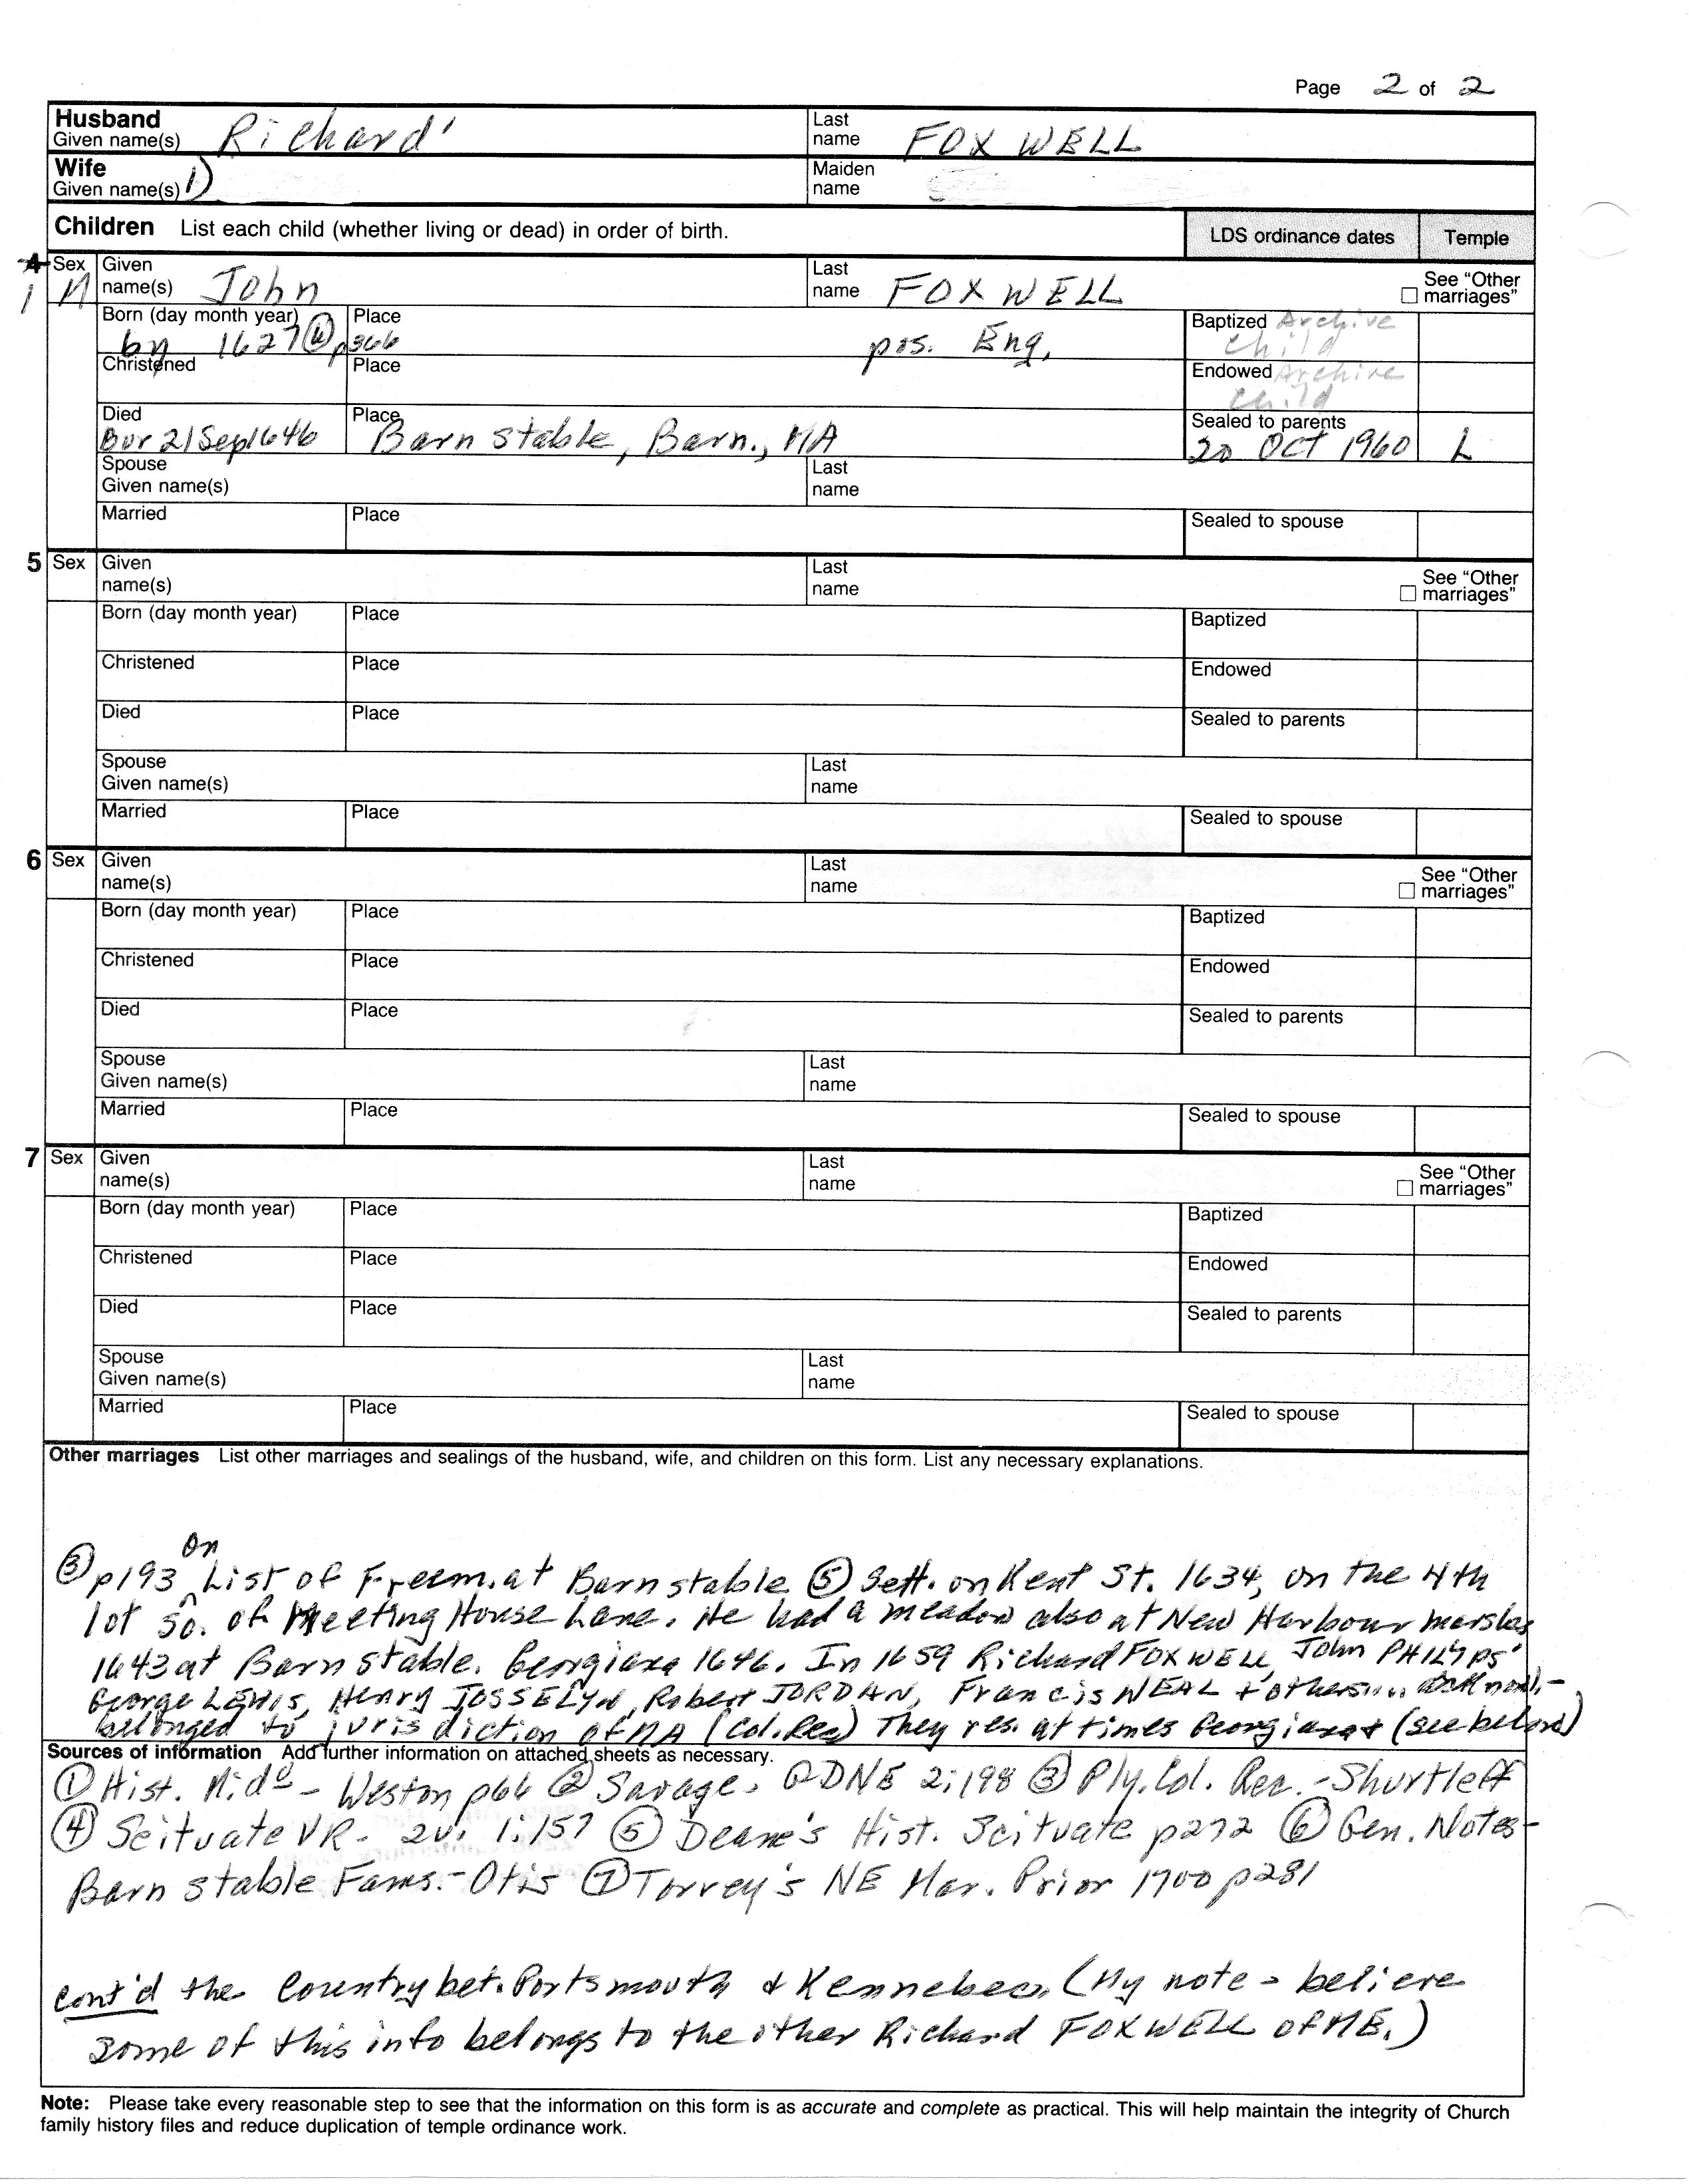 Page 2 of 2
Husband
Given name(s) Richard'
Last
name FOXWELL
Wife
Given name(s) 1)
Maiden
name
Children List each child (whether living or dead) in order of birth.
LDS ordinance dates
Temple
4
1
Sex
M
Given
name(s) John
Last
name FOXWELL
See "Other
marriages"
Born (day month year)
by 1627 p366
Place
pos. Eng.
Baptized Archive
Child
Christened
Place
Endowed Archive
Child
Died
Bur 21 Sep 1646
Place
Barnstable, Barn., MA
Sealed to parents
20 OCT 1960
L
Spouse
Given name(s)
Last
name
Married
Place
Sealed to spouse
5
Sex
Given
name(s)
Last
name
See "Other
marriages"
Born (day month year)
Place
Baptized
Christened
Place
Endowed
Died
Place
Sealed to parents
Spouse
Given name(s)
Last
name
Married
Place
Sealed to spouse
6
Sex
Given
name(s)
Last
name
See "Other
marriages"
Born (day month year)
Place
Baptized
Christened
Place
Endowed
Died
Place
Sealed to parents
Spouse
Given name(s)
Last
name
Married
Place
Sealed to spouse
7
Sex
Given
name(s)
Last
name
See "Other
marriages"
Born (day month year)
Place
Baptized
Christened
Place
Endowed
Died
Place
Sealed to parents
Spouse
Given name(s)
Last
name
Married
Place
Sealed to spouse
Other marriages List other marriages and sealings of the husband, wife, and children on this form. List any necessary explanations.
③ p193 On List of Freem. at Barnstable ⑤ Sett. on Kent St. 1634, on the 4th
lot So. of Meeting House Lane. He had a meadow also at New Harbour marshes
1643 at Barnstable. Georgiana 1646. In 1659 Richard FOXWELL, John PHILIPS
George LEWIS, Henry JOSSELYN, Robert JORDAN, Francis WEAL + others
belonged to jurisdiction of MA (Col. Rec) They res. at times (see below)
Sources of information Add further information on attached sheets as necessary.
① Hist. Mid° - Weston p66 ② Savage. GDNE 2:198 ③ Ply. Col. Rec. - Shurtleff
④ Scituate VR - 2v. 1:157 ⑤ Deane's Hist. Scituate p272 ⑥ Gen. Notes -
Barnstable Fams. - Otis ⑦ Torrey's NE Mar. Prior 1700 p281
cont'd the Country bet. Portsmouth & Kennebec. (My note - believe
some of this info belongs to the other Richard FOXWELL of ME.)
Note: Please take every reasonable step to see that the information on this form is as accurate and complete as practical. This will help maintain the integrity of Church
family history files and reduce duplication of temple ordinance work.